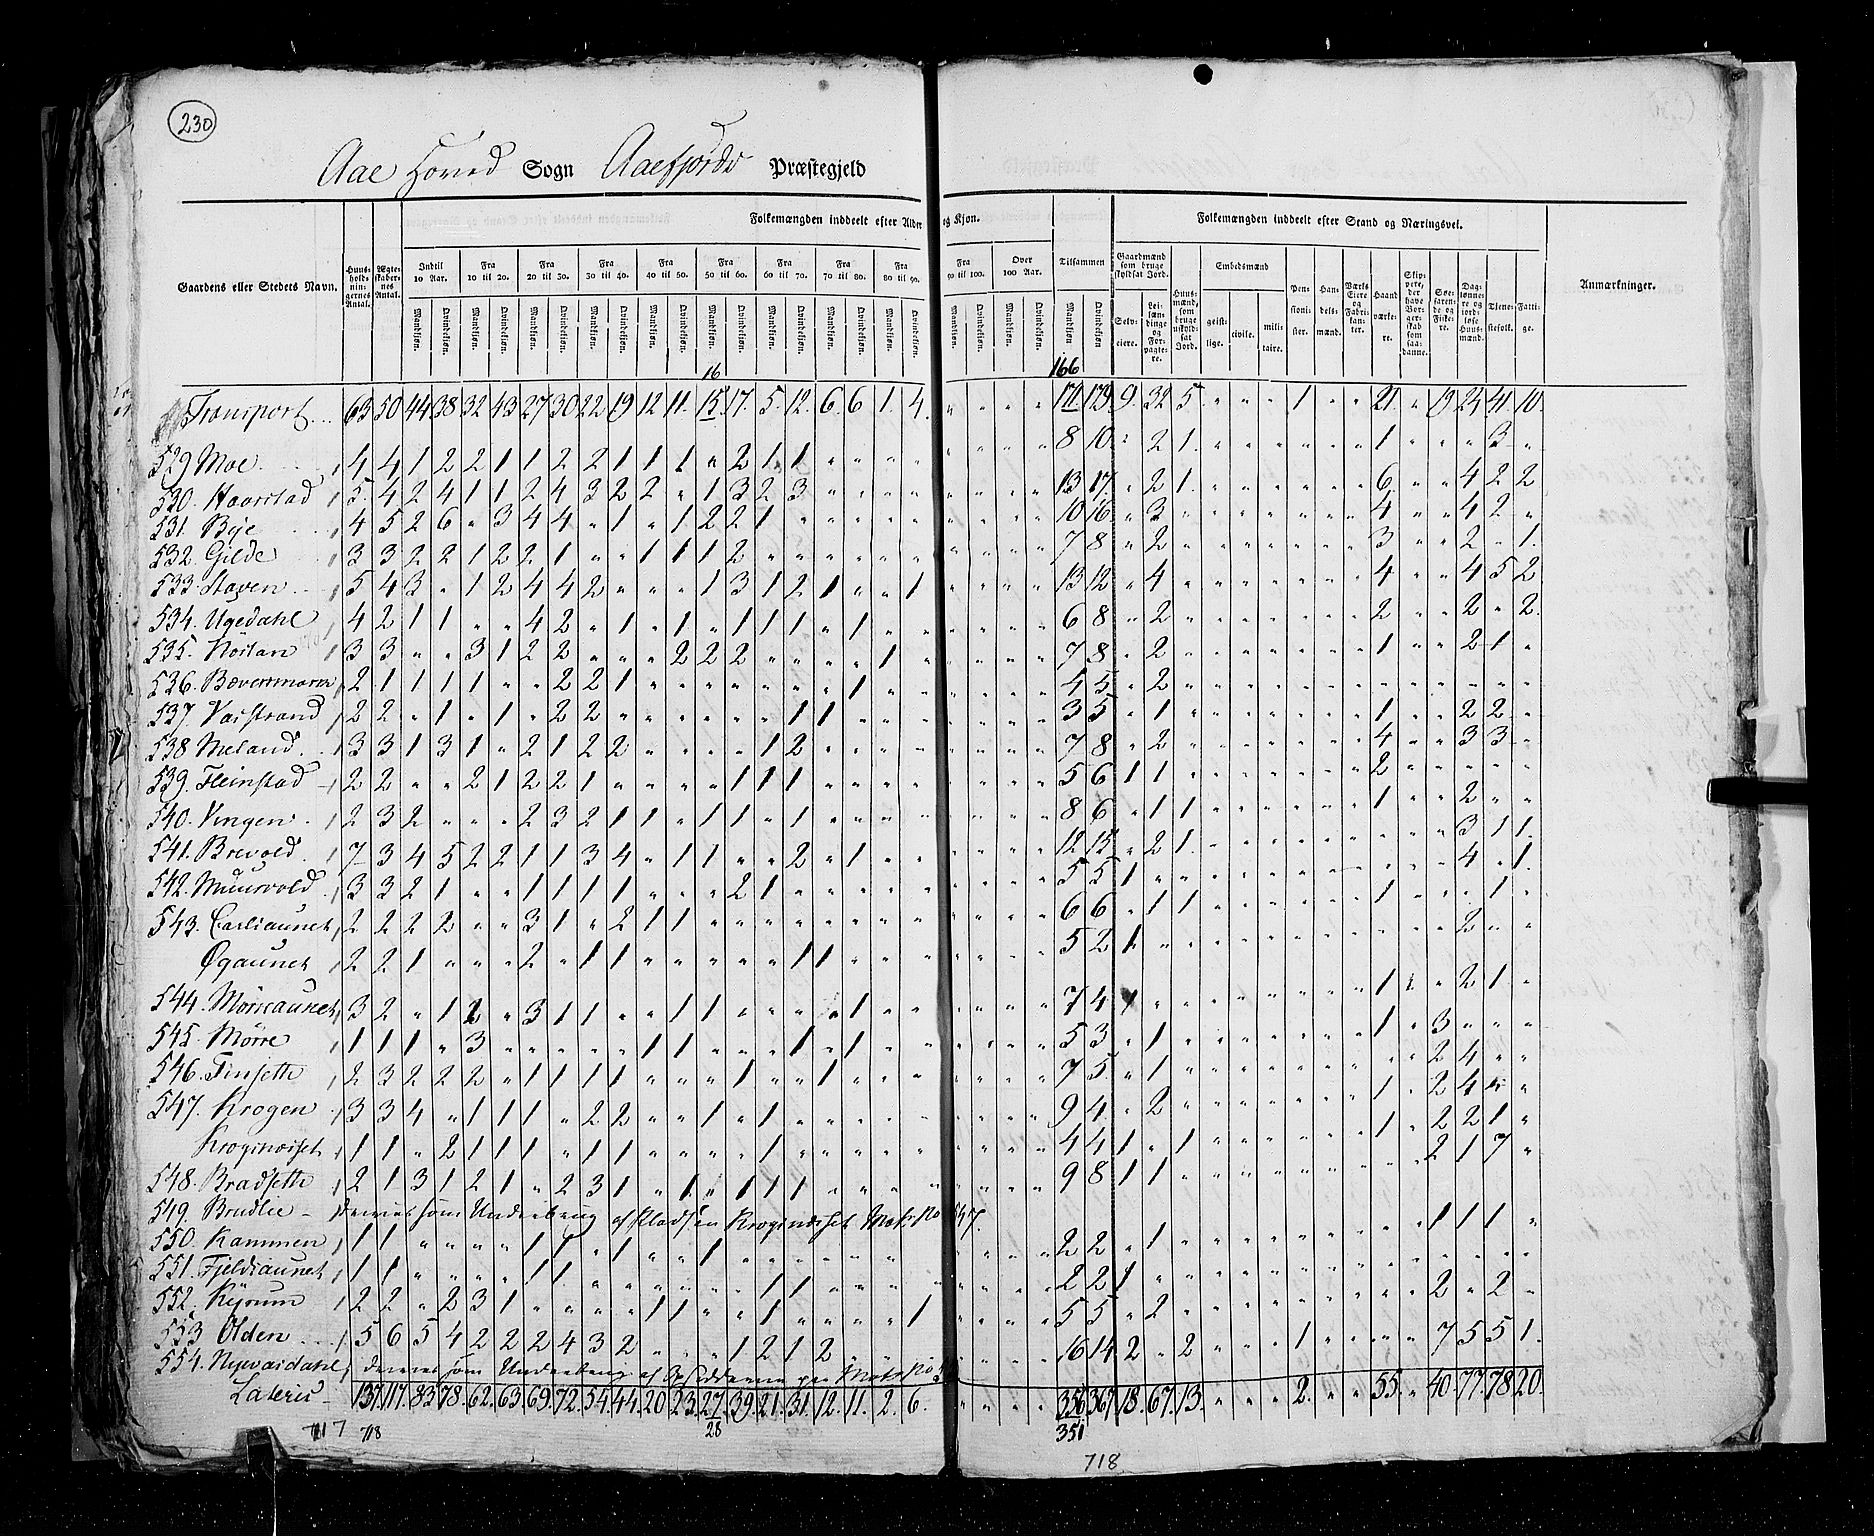 230
Aae Hoved Sogn Aaefjords Præstegjeld
Folkemængden inddeelt efter Alder og Kjøn.
Folkemængden inddeelt efter Stand og Næringsvei.
Gaardens eller Stedets Navn.
Huus-holdnin-gernes Antal.
Ægte-skaber-nes Antal.
Indtil 10 Aar.
Fra 10 til 20.
Fra 20 til 30.
Fra 30 til 40.
Fra 40 til 50.
Fra 50 til 60.
Fra 60 til 70.
Fra 70 til 80.
Fra 80 til 90.
Fra 90 til 100.
Over 100 Aar.
Tilsammen
Mandkjøn. Qvindekjøn.
Gaardmænd som bruge skyldsat Jord.
Selv-eiere.
Lei-læn-dinge og For-pagte-re.
Huus-mænd, som bruge uskyld-sat Jord.
Embedsmænd
geist-lige.
civile.
mili-taire.
Pen-sioni-ster.
Han-dels-mænd.
Værks Eiere og Fabri-kan-ter.
Haand værke-re.
Skip-pere, der have Bor-ger-skab som saa-danne.
Søe-faren-de og Fiske-re.
Dag-lønne-re og jord-løse Huus-mænd.
Tjene-stefolk.
Fatti-ge.
Anmærkninger.
16 166
Transport 63 50 44 38 32 43 27 30 22 19 12 11 15 17 5 12 6 6 1 4 " " " " 170 179 9 32 5 " " " 1 " " 21 " 19 24 41 10
529 Moe 4 4 1 2 2 1 1 2 2 1 1 1 " 2 1 1 " " " " " " " " 8 10 " 2 1 " " " " " " 1 " " " 3 "
530. Haarstad 5 4 2 4 1 1 2 4 3 2 2 " 1 3 2 3 " " " " " " " " 13 17 " 2 1 " " " " " " 6 " " 4 2 2
531. Bye 4 5 2 6 " 3 4 4 " 1 " 1 2 2 1 " " " " " " " " " 10 16 " 3 " " " " " " " 4 " " 4 2 "
532. Gilde 3 3 2 2 1 2 2 1 " " 1 1 1 2 " " " " " " " " " " 7 8 " 2 " " " " " " " 3 " " 2 " 1
533. Staven 5 4 3 " 1 2 4 4 2 " " " 1 3 1 2 1 " " 1 " " " " 13 12 " 4 " " " " " " " 4 " " 4 5 2
534. Ugedahl 4 2 1 1 " " 4 2 " 1 " 1 " 1 1 1 " 1 " " " " " " 6 8 " 2 " " " " " " " 2 " " 2 " 2
535. 3 3 " " 3 1 2 2 " " " 2 2 2 " " " " 1 " " " " " 7 8 " 2 " " " " " " " 1 " " 2 1 "
536. 2 1 1 1 1 " " 2 2 1 " " " " " " " 1 " " " " " " 4 5 " 2 " " " " " " " " " " " " "
537. 2 2 " 1 " 1 " 2 2 " " " " " " 1 1 " " " " " " " 3 5 " 1 " " " " " " " 1 " " 2 2 "
538 Meland 3 3 1 3 1 " 2 1 2 2 " " " " 1 2 " " " " " " " " 7 8 " 2 " " " " " " " 4 " " 3 3 "
539. Fleinstad 2 2 " " 2 1 2 2 1 " " " " 1 1 1 " " " " " " " " 5 6 1 1 " " " " " " " 2 " " " " "
540. Vingen 2 3 2 " " " 2 3 2 1 1 " 1 1 " 1 " " " " " " " " 8 6 " 1 1 " " " " " " 1 " " 2 " "
541. Brevold 7 3 4 5 2 2 1 1 3 4 " 1 1 " " 2 " 1 " " " " " " 12 15 " 2 1 " " " " " " " " " 3 1 1
542. Muurvold 3 3 2 1 " " 1 1 1 1 " " " 2 1 " " " " " " " " " 5 5 1 " " " " " " " " " " " 4 " 1
543. Carliaunet 2 2 2 2 " " 3 1 " 2 1 1 " " " " " " " " " " " " 6 6 " 1 1 " " " " " " 1 " " " 1 "
Øgaunet 2 2 1 " " " 2 " 1 1 " " " " " 1 1 " " " " " " " 5 2 1 " " " " " " " " " " " 2 " "
544. Mörreaunet 3 2 " 1 2 " 3 1 1 " " 1 1 " " " " 1 " " " " " " 7 4 1 " " " " " " " " 1 " " 2 1 "
545. Mörre 1 1 1 " 3 " " " " " 1 1 " " " 1 " 1 " " " " " " 5 3 " 1 " " " " " " " 1 " 3 " " "
546. Finseth 2 3 2 2 2 " 1 1 1 1 " " " 1 " " 1 " " " " " " " 7 5 " 1 " " " " " " " " " 2 4 " "
547. Krogen 3 3 4 " 1 1 1 " 2 2 " " 1 " 1 " " " " " " " " " 9 4 " 2 " " " " " " " 1 " 2 4 " "
1 1 " 2 1 1 1 " 1 1 " " " " 1 " " " " " " " " " 4 4 1 " 1 " " " " " " 1 " 2 2 1 "
548. Bradseth 2 1 3 1 2 1 " 2 3 1 " 1 " 1 1 1 " " " " " " " " 9 8 1 1 " " " " " " " " " 2 1 7 "
549. Brudlie - som Underbrug af Pladsen
550. Kammen 1 1 " " " " 1 1 " 1 " " 1 " " " " " " " " " " " 2 2 " 1 " " " " " " " " " 1 1 1 "
551. Fjeldiaunet 1 1 " " " " 1 1 " " " " " " 1 1 " " " " " " " " 2 2 1 " " " " " " " " " " " " " "
552. 2 2 " 2 3 1 " " " " 1 1 " " 1 " " " " 1 " " " " 5 5 " 2 " " " " " " " " " 2 " 2 "
553 Olden 5 6 5 4 2 2 2 4 3 2 " " " 1 2 1 2 " " " " " " " 16 14 2 " 2 " " " 1 " " " " 7 5 5 1
554. som Underbrug af
Lateris 137 117 83 78 62 63 69 72 54 44 20 23 27 39 21 31 12 11 2 6 " " " " 356 367 18 67 13 " " " 2 " " 55 " 40 77 78 20
717 718 28 351
718